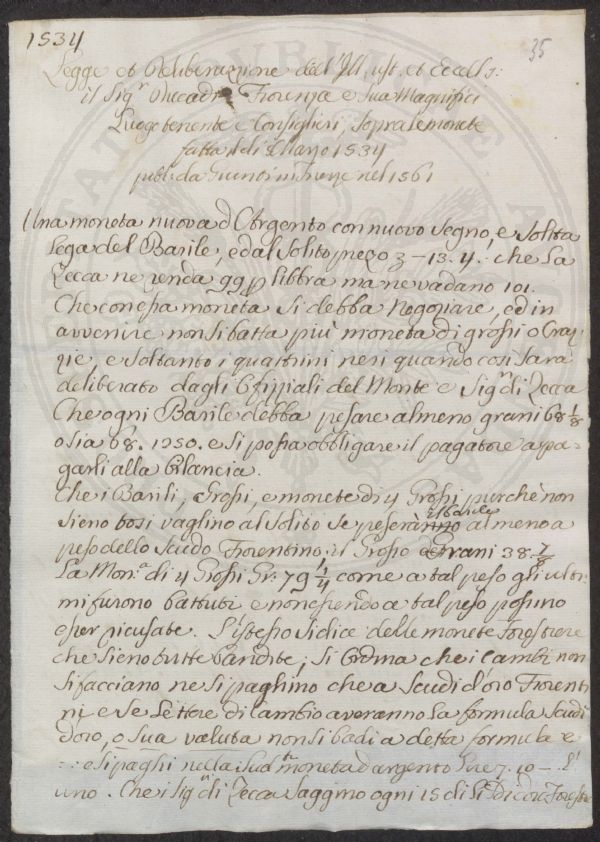 1534
35
Legge et Deliberazione dell'Ill. ust. et Eccels:
il Sig.r Duca di Fiorenza e Sua Magnifici
Luogotenente e Consiglieri, sopra le monete
fatta il di Marzo 1534
pub. da Giunti in Firenze nel 1561
Una moneta nuova d'Argento con nuovo Segno, e Solita
Lega del Barile, ed al Solito pezo 3 - 13. 4. che La
Zecca ne renda 99 p libbra ma ne vadano 101.
Che con essa moneta Si debba Negoziare, ed in
avvenire non si batta più moneta di grossi o Craz=
zie, e Soltanto i quattrini neri quando così Sarà
deliberato dagli Ofiziali del Monte e Sig.ri di Zecca
Che ogni Barile debba pesare almeno grani 68 1/8
o sia 68. 1250. e Si possa obbligare il pagatore a pa=
garli alla Bilancia.
Che i Barili, Grossi, e monete di 4 Grossi purchè non
Sieno tosi vaglino al Solito Se peseranno il Barile almeno a
peso dello Scudo Fiorentino il Grosso Grani 38. 7/8
La Mon.a di 4 Grossi Gr: 79 1/4 come a tal peso gli ulti=
mi furono battuti e non essendo a tal peso possino
esser ricusate. L'istesso si dice delle monete Forestiere
che Sieno tutte bandite; Si Ordina che i Cambi non
Si facciano ne Si paghino che a Scudi d'oro Fiorenti
ni e Se Lettere di Cambio averanno La formula Scudi
d'oro, o Sua valuta non Si badi a detta formula e
e Si paghi nella Sud.a moneta d'argento L. 7. 10 -
uno. Che i Sig.ri di Zecca Saggino ogni 15 di d'oro Forestie